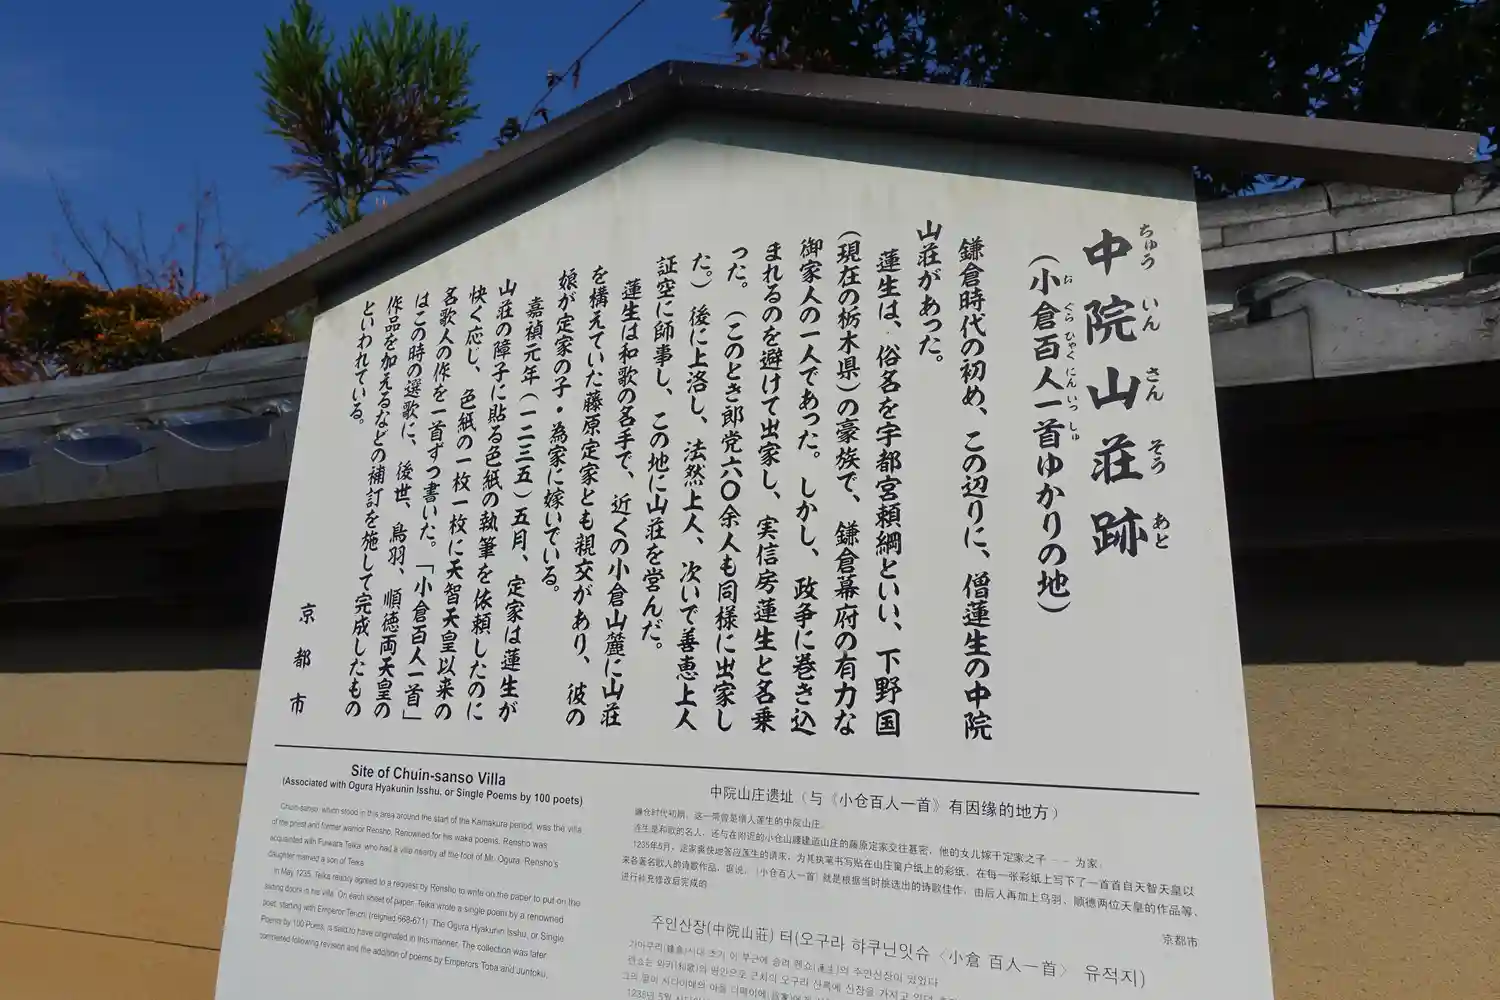 中院山荘跡
ちゅう いん さん そう あと
(小倉百人一首ゆかりの地)
お ぐら ひゃく にん いっ しゅ
鎌倉時代の初め、この辺りに、僧蓮生の中院
山荘があった。
蓮生は、俗名を宇都宮頼綱といい、下野国
(現在の栃木県)の豪族で、鎌倉幕府の有力な
御家人の一人であった。しかし、政争に巻き込
まれるのを避けて出家し、実信房蓮生と名乗
った。(このとき郎党六〇余人も同様に出家し
た。)後に上洛し、法然上人、次いで善恵上人
証空に師事し、この地に山荘を営んだ。
蓮生は和歌の名手で、近くの小倉山麓に山荘
を構えていた藤原定家とも親交があり、彼の
娘が定家の子・為家に嫁いでいる。
嘉禎元年(一二三五)五月、定家は蓮生が
山荘の障子に貼る色紙の執筆を依頼したのに
快く応じ、色紙の一枚一枚に天智天皇以来の
名歌人の作を一首ずつ書いた。「小倉百人一首」
はこの時の選歌に、後世、鳥羽、順徳両天皇の
作品を加えるなどの補訂を施して完成したもの
といわれている。
京都市
Site of Chuin-sanso Villa
(Associated with Ogura Hyakunin Isshu, or Single Poems by 100 poets)
Chuin-sanso, which stood in this area around the start of the Kamakura period, was the villa
of the priest and former warrior Rensho. Renowned for his waka poems, Rensho was
acquainted with Fujiwara Teika, who had a villa nearby at the foot of Mt. Ogura. Rensho's
daughter married a son of Teika.
In May 1235, Teika readily agreed to a request by Rensho to write on the paper to put on the
sliding doors in his villa. On each sheet of paper, Teika wrote a single poem by a renowned
poet, starting with Emperor Tenchi (reigned 668-671). The Ogura Hyakunin Isshu, or Single
Poems by 100 Poets, is said to have originated in this manner. The collection was later
completed following revision and the addition of poems by Emperors Toba and Juntoku.
中院山庄遗址(与《小仓百人一首》有因缘的地方)
镰仓时代初期,这一带曾是僧人莲生的中院山庄。
莲生是和歌的名人,还与在附近的小仓山麓建造山庄的藤原定家交往甚密,他的女儿嫁于定家之子——为家。
1235年5月,定家爽快地答应莲生的请求,为其执笔书写贴在山庄窗户纸上的彩纸,在每一张彩纸上写下了一首首自天智天皇以
来各著名歌人的诗歌作品。据说,《小仓百人一首》就是根据当时挑选出的诗歌佳作,由后人再加上鸟羽、顺德两位天皇的作品等,
进行补充修改后完成的。
京都市
주인산장(中院山莊) 터(오구라 햐쿠닌잇슈〈小倉 百人一首〉 유적지)